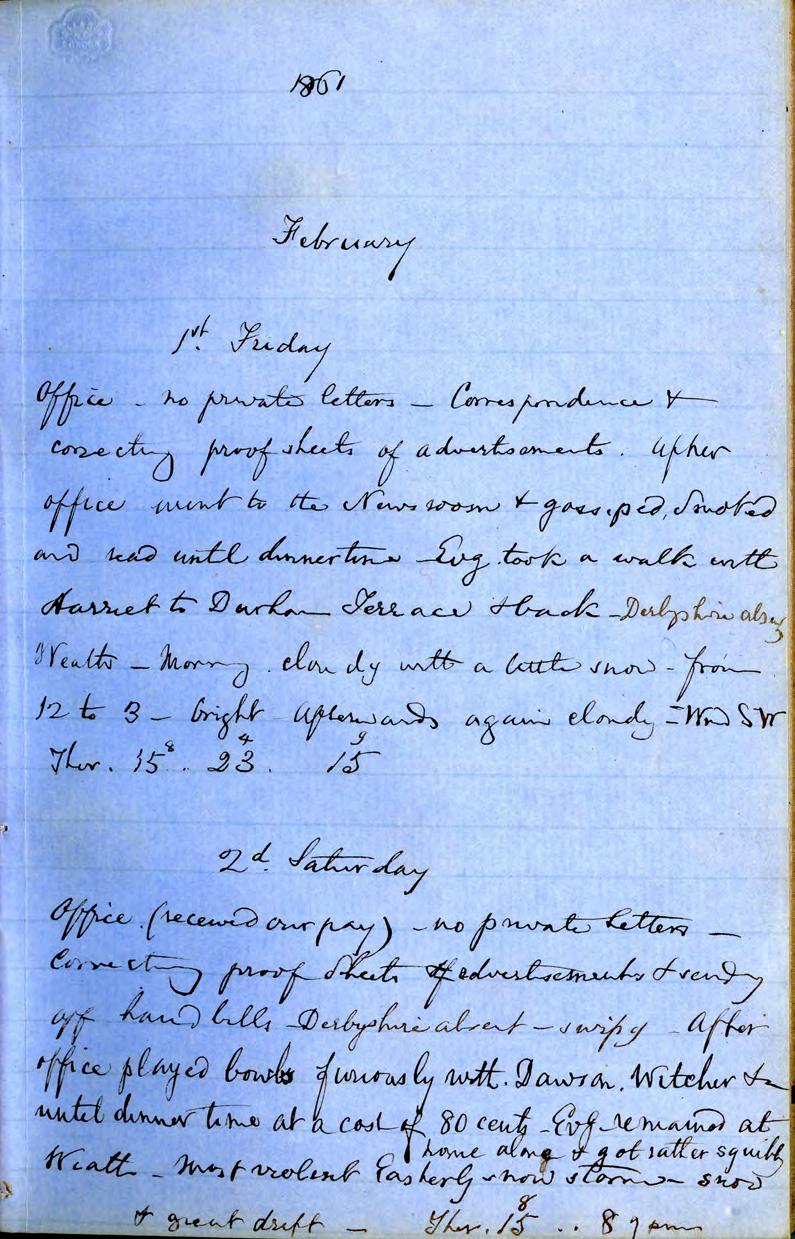 1861
February
1st. Friday
Office - no private letters - Correspondence &
correcting proof sheets of advertisements. After
office went to the Newsroom & gossiped, smoked
and read until dinnertime - Evg. took a walk with
Harriet to Durham Terrace & back - Derbyshire
Weath - Morng. cloudy with a little snow - from
12 to 3 - bright Afterwards again cloudy - Wnd SW
Ther. 15 8 .. 23 4 . 15 9
2d. Saturday
Office. (received our pay) - no private letters -
Correcting proof sheets of advertisements & sendg
off hand bills - Derbyshire absent - swipy - After
office played bowls furiously with. Dawson, Witcher &
until dinner time at a cost of 80 cents - Evg remained at
home alone & got rather squibby
Weath - Most violent Easterly snow storm - snow
& great drift - Ther. 15 8 .. 8 9 pm